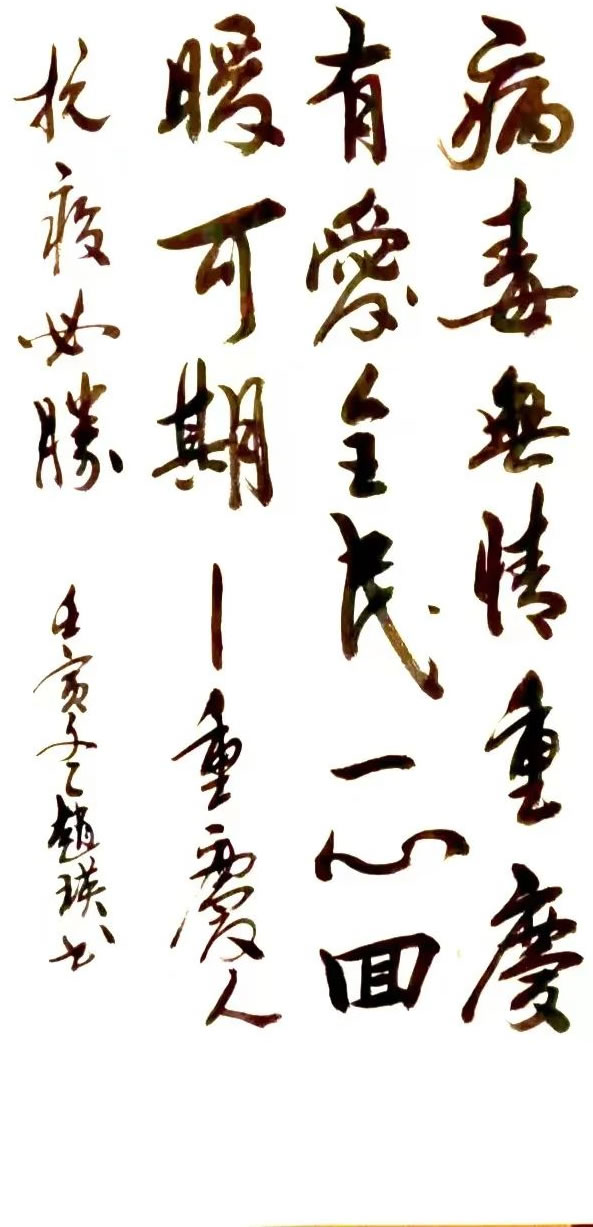 病毒無情重慶
有愛全民一心回
暖可期—重慶人
抗疫必勝
壬寅冬趙瑛书